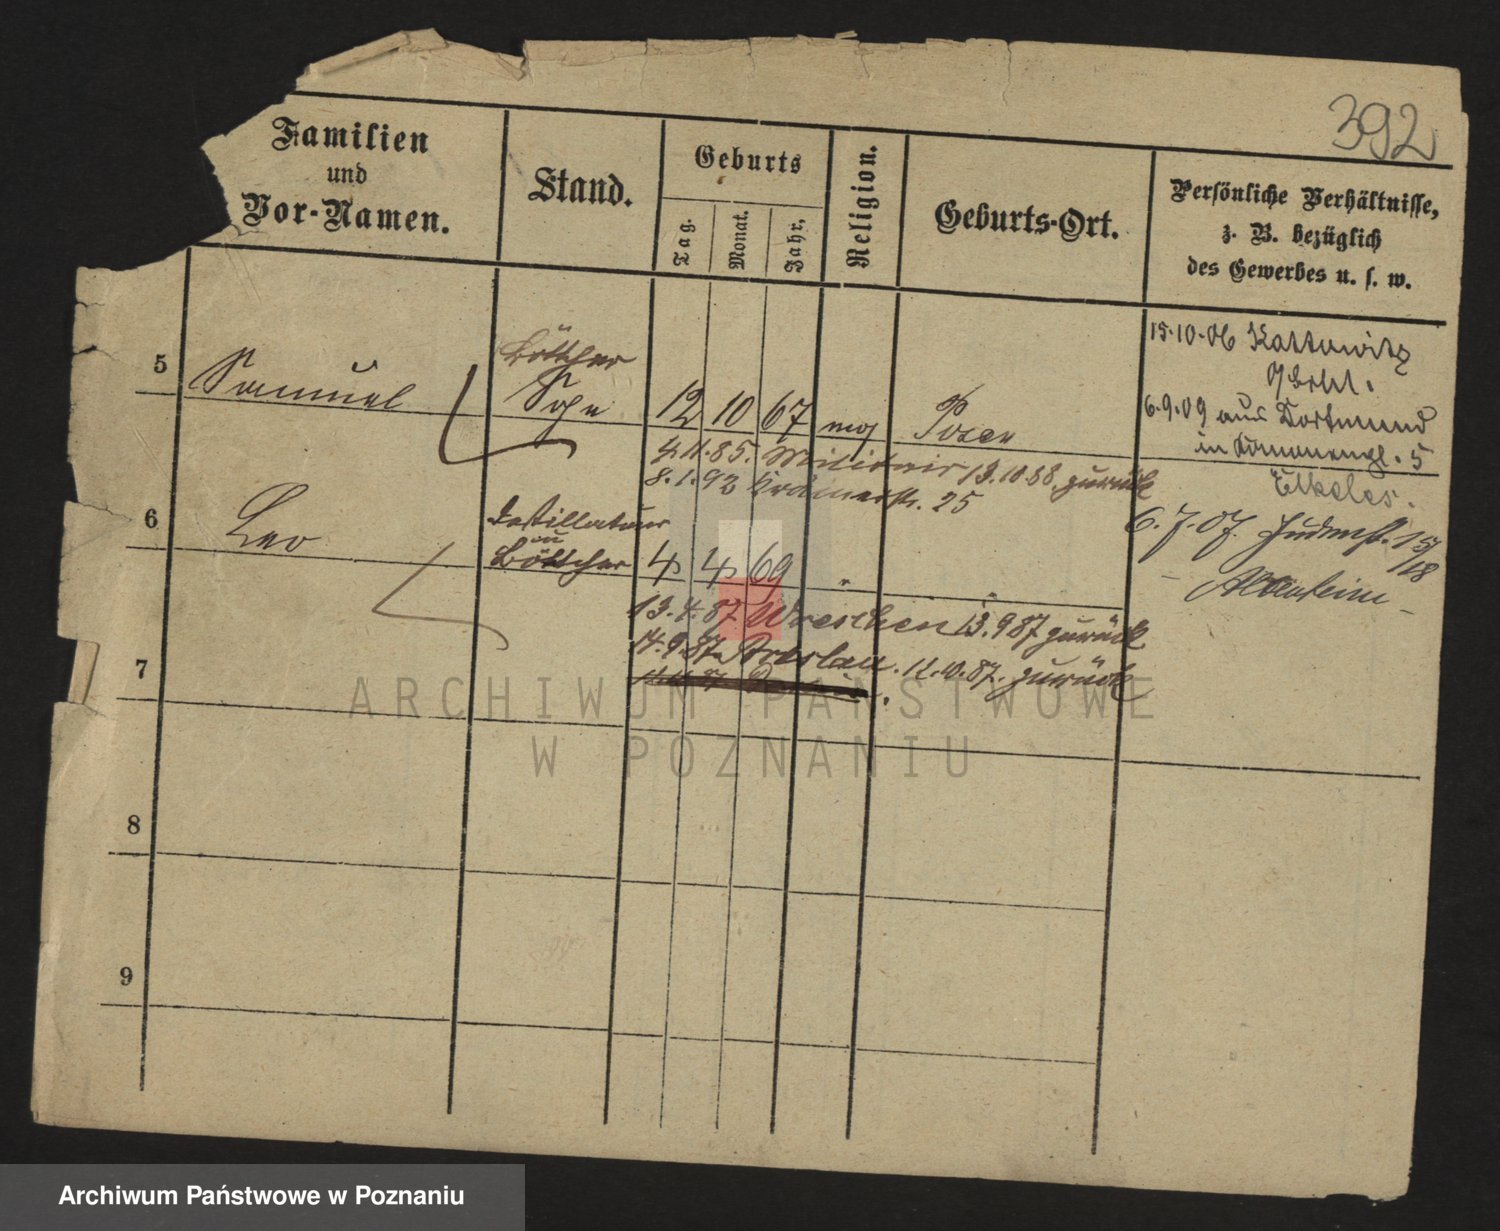 392
Familien
und
Vor-Namen.
Stand.
Geburts
Tag.
Monat.
Jahr.
Religion.
Geburts-Ort.
Persönliche Verhältnisse,
z. B. bezüglich
des Gewerbes u. s. w.
5
Samuel
Böttcher
Sohn
12 10 67 mos Posen
15.10.06 Kattowitz
6.9.09 aus Dortmund
in 5
Elkeles.
4.11.85. Militair 13.10.88 zurück
8.1.92 Krämerstr. 25
6
Leo
Destillateur
u
Böttcher
4 4 69 " "
6.7.07. Judenstr. 15/18
- Allenstein -
13.4.87 Wreschen 13.9 87 zurück
14.9.87. Breslau. 12.10.87. zurück
7
8
9
ARCHIWUM PAŃSTWOWE
W POZNANIU
Archiwum Państwowe w Poznaniu